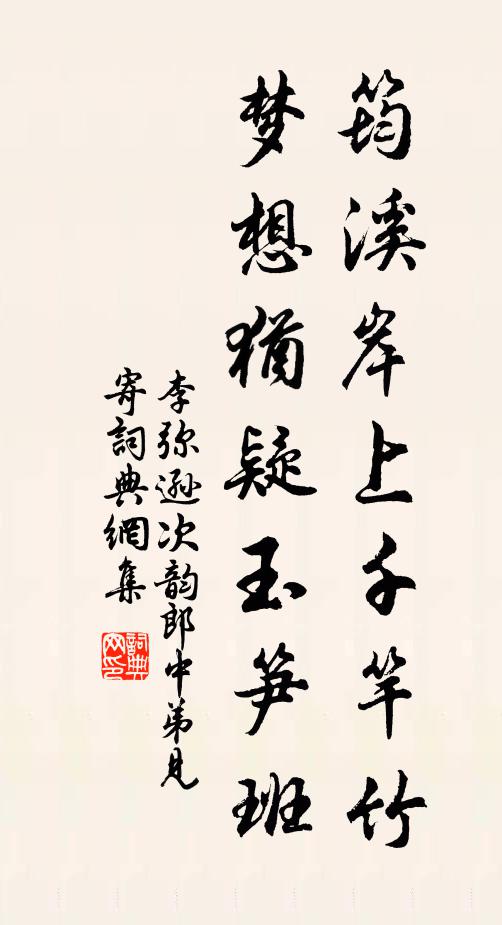 筠溪岸上千竿竹
梦想犹疑玉笋班
李弥逊次韵郎中弟见
寄词典网集
词典
网印